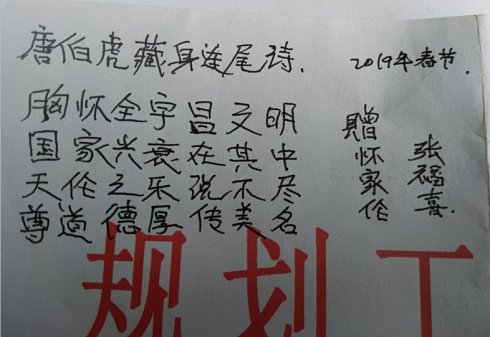 唐伯虎藏身连尾诗.
2019年春节.
胸怀全字昌文明
国家兴衰在其中
天伦之乐说不尽
尊道德厚传美名
赠怀家伦
张福喜.
规划工